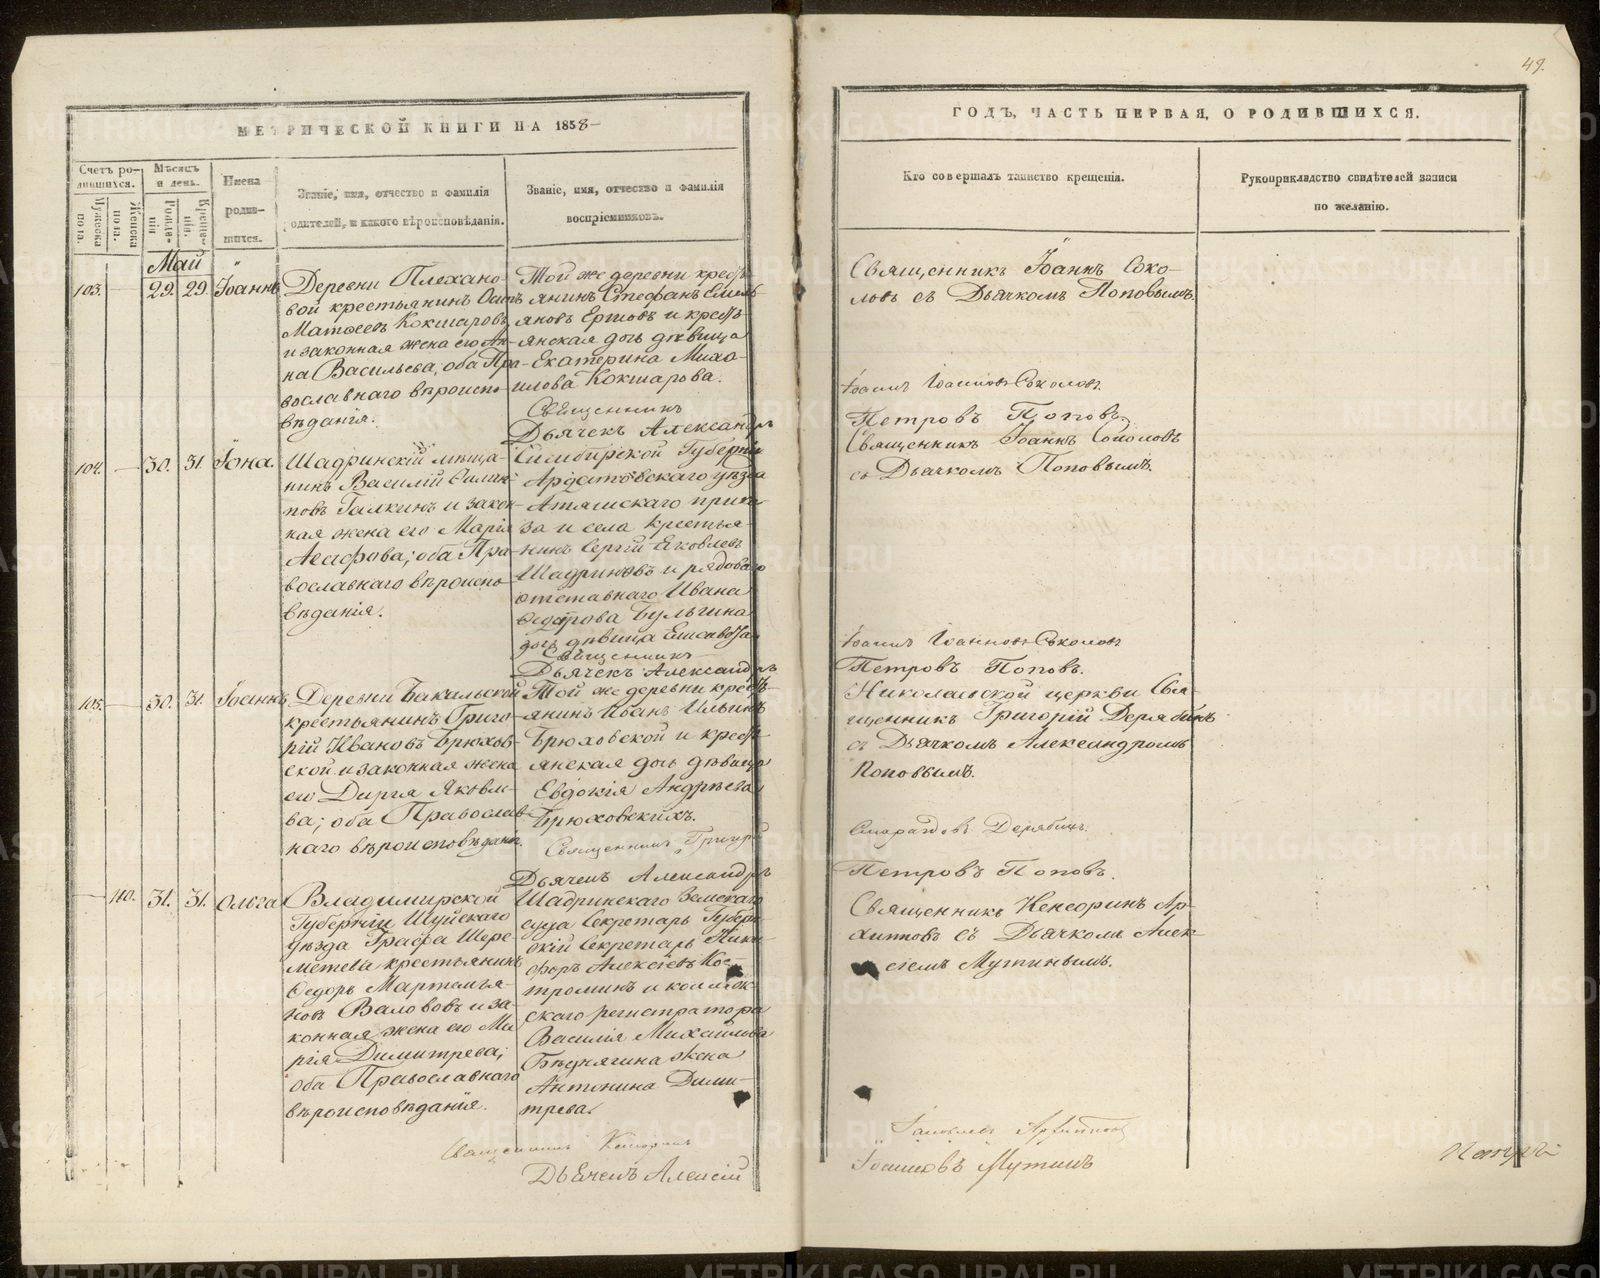 49.
МЕТРИЧЕСКОЙ КНИГИ НА 1858
ГОДЪ, ЧАСТЬ ПЕРВАЯ, О РОДИВШИХСЯ.
Счетъ ро-
дившихся.
Мужеска
пола.
Женска
пола.
Мѣсяцъ
и день.
Рожде-
нія.
Креще-
нія.
Имена
родив-
шихся.
Званіе, имя, отчество и фамилія
родителей, и какого вѣроисповѣданія.
Званіе, имя, отчество и фамилія
воспріемниковъ.
Кто совершалъ таинство крещенія.
Рукоприкладство свидѣтелей записи
по желанію.
Май
103.
29. 29.
Іоаннъ
Деревни Плехано-
вой крестьянинъ Осипъ
Матѳеевъ Кокшаровъ
и законная жена его Ан-
на Васильева, оба Пра-
вославнаго вѣроиспо-
вѣданія.
Той же деревни кресть-
янинъ Стефанъ Емель-
яновъ Ершовъ и кресть-
янская дочь дѣвица
Екатерина Миха-
илова Кокшарова.
Священникъ
Дьячекъ Александръ
Священникъ Іоаннъ Соко-
ловъ съ Дьячкомъ Поповымъ.
Іоаннъ Іоанновъ Соколовъ.
Петровъ Поповъ
104.
30. 31.
Іона.
Шадринскій мѣща-
нинъ Василій Филип-
повъ Галкинъ и закон-
ная жена его Марія
Асафова; оба Пра-
вославнаго вѣроиспо-
вѣданія.
Симбирской Губерніи
Ардатовскаго уѣзда
Атяшскаго прика-
за и села крестья-
нинъ Сергій Яковлевъ
Шадриновъ и рядоваго
отставнаго Ивана
Ѳедорова Булыгина
дочь дѣвица Елисавета
Священникъ
Дьячекъ Александръ
Священникъ Іоаннъ Соколовъ
съ Дьячкомъ Поповымъ.
Іоаннъ Іоанновъ Соколовъ
Петровъ Поповъ.
105.
30. 31.
Іоаннъ
Деревни Бакальской
крестьянинъ Григо-
рій Ивановъ Брюхов-
ской и законная жена
его Дарья Яковле-
ва; оба Православ-
наго вѣроисповѣданія.
Той же деревни кресть-
янинъ Иванъ Ильинъ
Брюховской и кресть-
янская дочь дѣвица
Евдокія Андрѣева
Брюховскихъ.
Священникъ Григорій
Дьячекъ Александръ
Николаевской церкви Свя-
щенникъ Григорій Дерябинъ
съ Дьячкомъ Александромъ
Поповымъ.
Смарагдовъ Дерябинъ.
Петровъ Поповъ.
110.
31. 31.
Ольга
Владимирской
Губерніи Шуйскаго
уѣзда Графа Шере-
метева крестьянинъ
Ѳедоръ Мартемья-
новъ Валововъ и за-
конная жена его Ма-
рія Димитрева;
оба Православнаго
вѣроисповѣданія.
Шадринскаго Земскаго
суда Секретарь Губерн-
скій Секретарь Ники-
форъ Алексѣевъ Кос-
троминъ и коллеж-
скаго регистратора
Василія Михайлова
Бѣднягина жена
Антонина Дими-
трева.
Священникъ Кенсоринъ
Дьячекъ Алексій
Священникъ Кенсоринъ Ар-
хиповъ съ Дьячкомъ Алек-
сіемъ Мутинымъ.
Іоанновъ Мутинъ